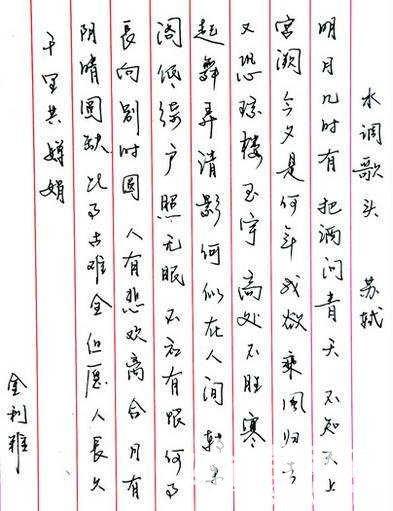 水调歌头 苏轼
明月几时有 把酒问青天 不知天上
宫阙 今夕是何年 我欲乘风归去
又恐琼楼玉宇 高处不胜寒
起舞弄清影 何似在人间 转朱
阁低绮户 照无眠 不应有恨 何事
長向别时圆 人有悲欢离合 月有
阴晴圆缺 此事古难全 但愿人長久
千里共婵娟
金利